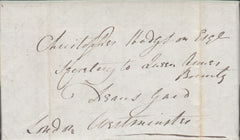 Christopher Hodgson Esqr
Secretary to Queen Annes
Bounty
Deans Yard
London Westminster